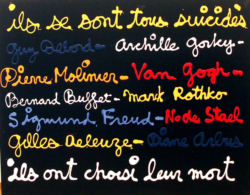 ils se sont tous suicidés
Guy Debord - Archille Gorky -
Pierre Molinier - Van Gogh -
Bernard Buffet - mark Rothko
Sigmund Freud - Node Stael
Gilles Deleuze - Diane Arbus
ils ont choisi leur mort